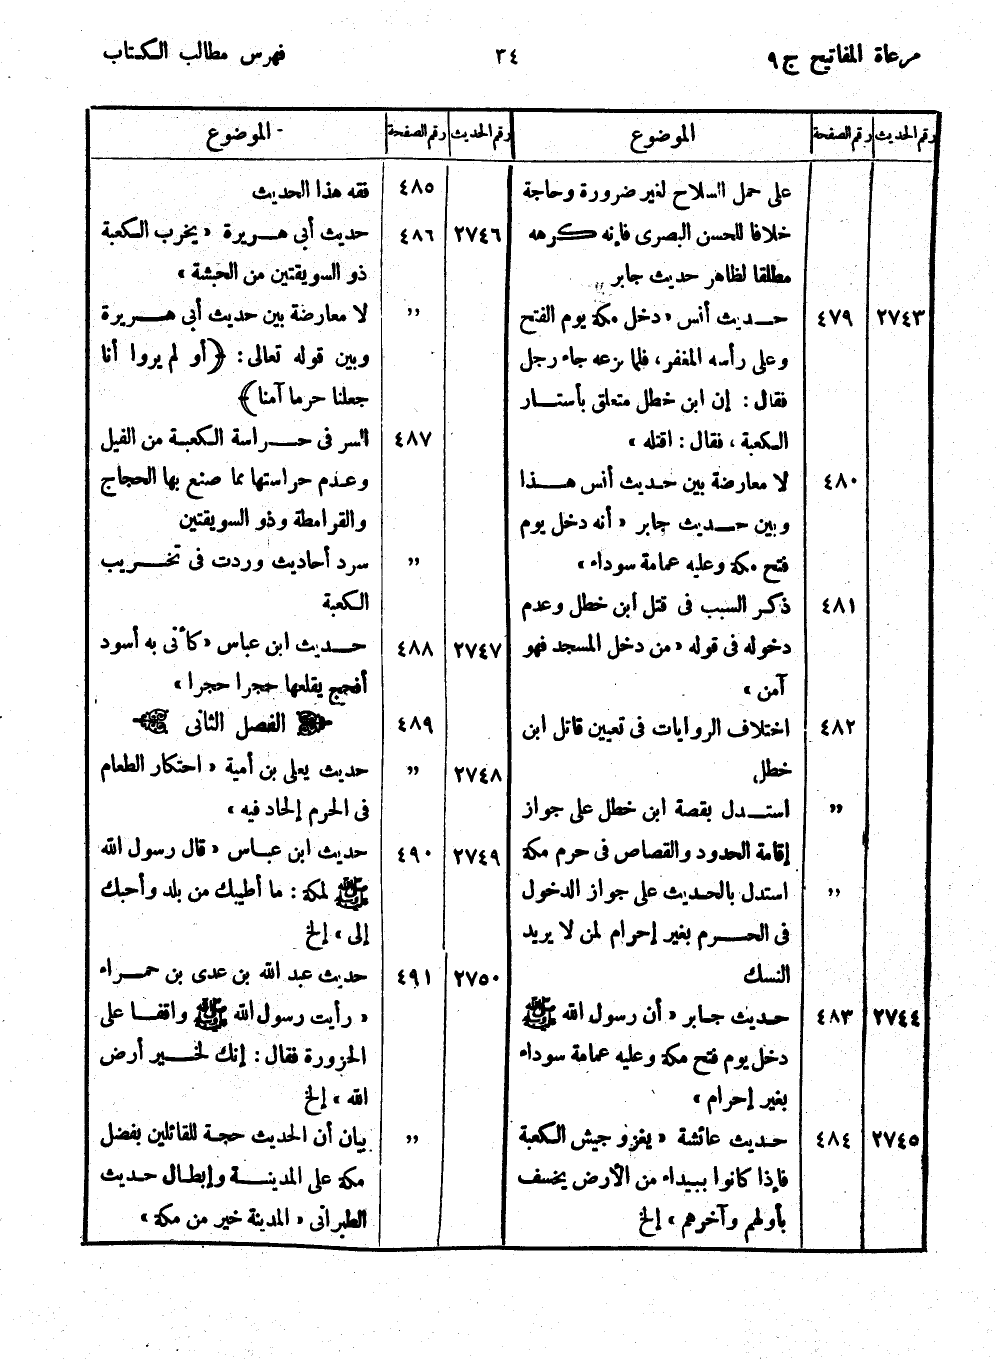 مرعاة المفاتيح ج ٩ ٣٤ فهرس مطالب الكتاب
رقم الحديث رقم الصفحة الموضوع
على حمل السلاح لغير ضرورة وحاجة
خلافا للحسن البصرى فإنه كرهه
مطلقا لظاهر حديث جابر
٢٧٤٣ ٤٧٩ حديث أنس «دخل مكة يوم الفتح
وعلى رأسه المغفر، فلما نزعه جاء رجل
فقال: إن ابن خطل متعلق بأستار
الكعبة، فقال: اقتله»
٤٨٠ لا معارضة بين حديث أنس هذا
وبين حديث جابر «أنه دخل يوم
فتح مكة وعليه عمامة سوداء»
٤٨١ ذكر السبب فى قتل ابن خطل وعدم
دخوله فى قوله «من دخل المسجد فهو
آمن»
٤٨٢ اختلاف الروايات فى تعيين قاتل ابن
خطل
,, استدل بقصة ابن خطل على جواز
إقامة الحدود والقصاص فى حرم مكة
,, استدل بالحديث على جواز الدخول
فى الحرم بغير إحرام لمن لا يريد
النسك
٢٧٤٤ ٤٨٣ حديث جابر «أن رسول الله ﷺ
دخل يوم فتح مكة وعليه عمامة سوداء
بغير إحرام»
٢٧٤٥ ٤٨٤ حديث عائشة «يغزو جيش الكعبة
فإذا كانوا ببيداء من الأرض يخسف
بأولهم وآخرهم» إلخ
رقم الحديث رقم الصفحة الموضوع
٤٨٥ فقه هذا الحديث
٢٧٤٦ ٤٨٦ حديث أبى هريرة «يخرب الكعبة
ذو السويقتين من الحبشة»
,, لا معارضة بين حديث أبى هريرة
وبين قوله تعالى: ﴿أو لم يروا أنا
جعلنا حرما آمنا﴾
٤٨٧ السر فى حراسة الكعبة من الفيل
وعدم حراستها مما صنع بها الحجاج
والقرامطة وذو السويقتين
,, سرد أحاديث وردت فى تخريب
الكعبة
٢٧٤٧ ٤٨٨ حديث ابن عباس «كأنى به أسود
أفحج يقلعها حجرا حجرا»
٤٨٩ الفصل الثانى
٢٧٤٨ ,, حديث يعلى بن أمية «احتكار الطعام
فى الحرم إلحاد فيه»
٢٧٤٩ ٤٩٠ حديث ابن عباس «قال رسول الله
ﷺ لمكة: ما أطيبك من بلد وأحبك
إلى» إلخ
٢٧٥٠ ٤٩١ حديث عبد الله بن عدى بن حمراء
«رأيت رسول الله ﷺ واقفا على
الحزورة فقال: إنك لخير أرض
الله» إلخ
,, بيان أن الحديث حجة للقائلين بفضل
مكة على المدينة وإبطال حديث
الطبرانى «المدينة خير من مكة»